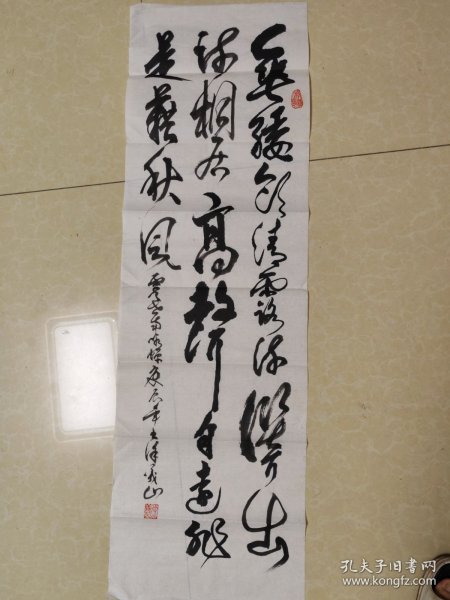 垂緌飲清露流響出
疏桐居高聲自遠非
是藉秋風
虞世南 庚辰年
孔夫子旧书网
www.kongfz.com